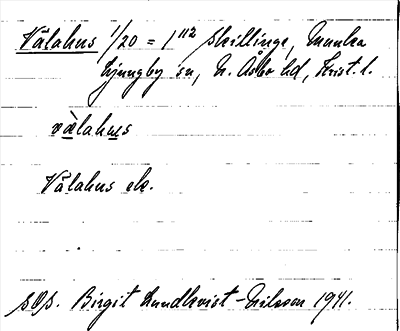 Vålahus 1/20 = 1 112 skillinge, Munka
Ljungby sn, N. Åsbo hd, Krist. l.
vàlahus
Vålahus ek.
SOS. Birgit Lundkvist-Nilsson 1941.